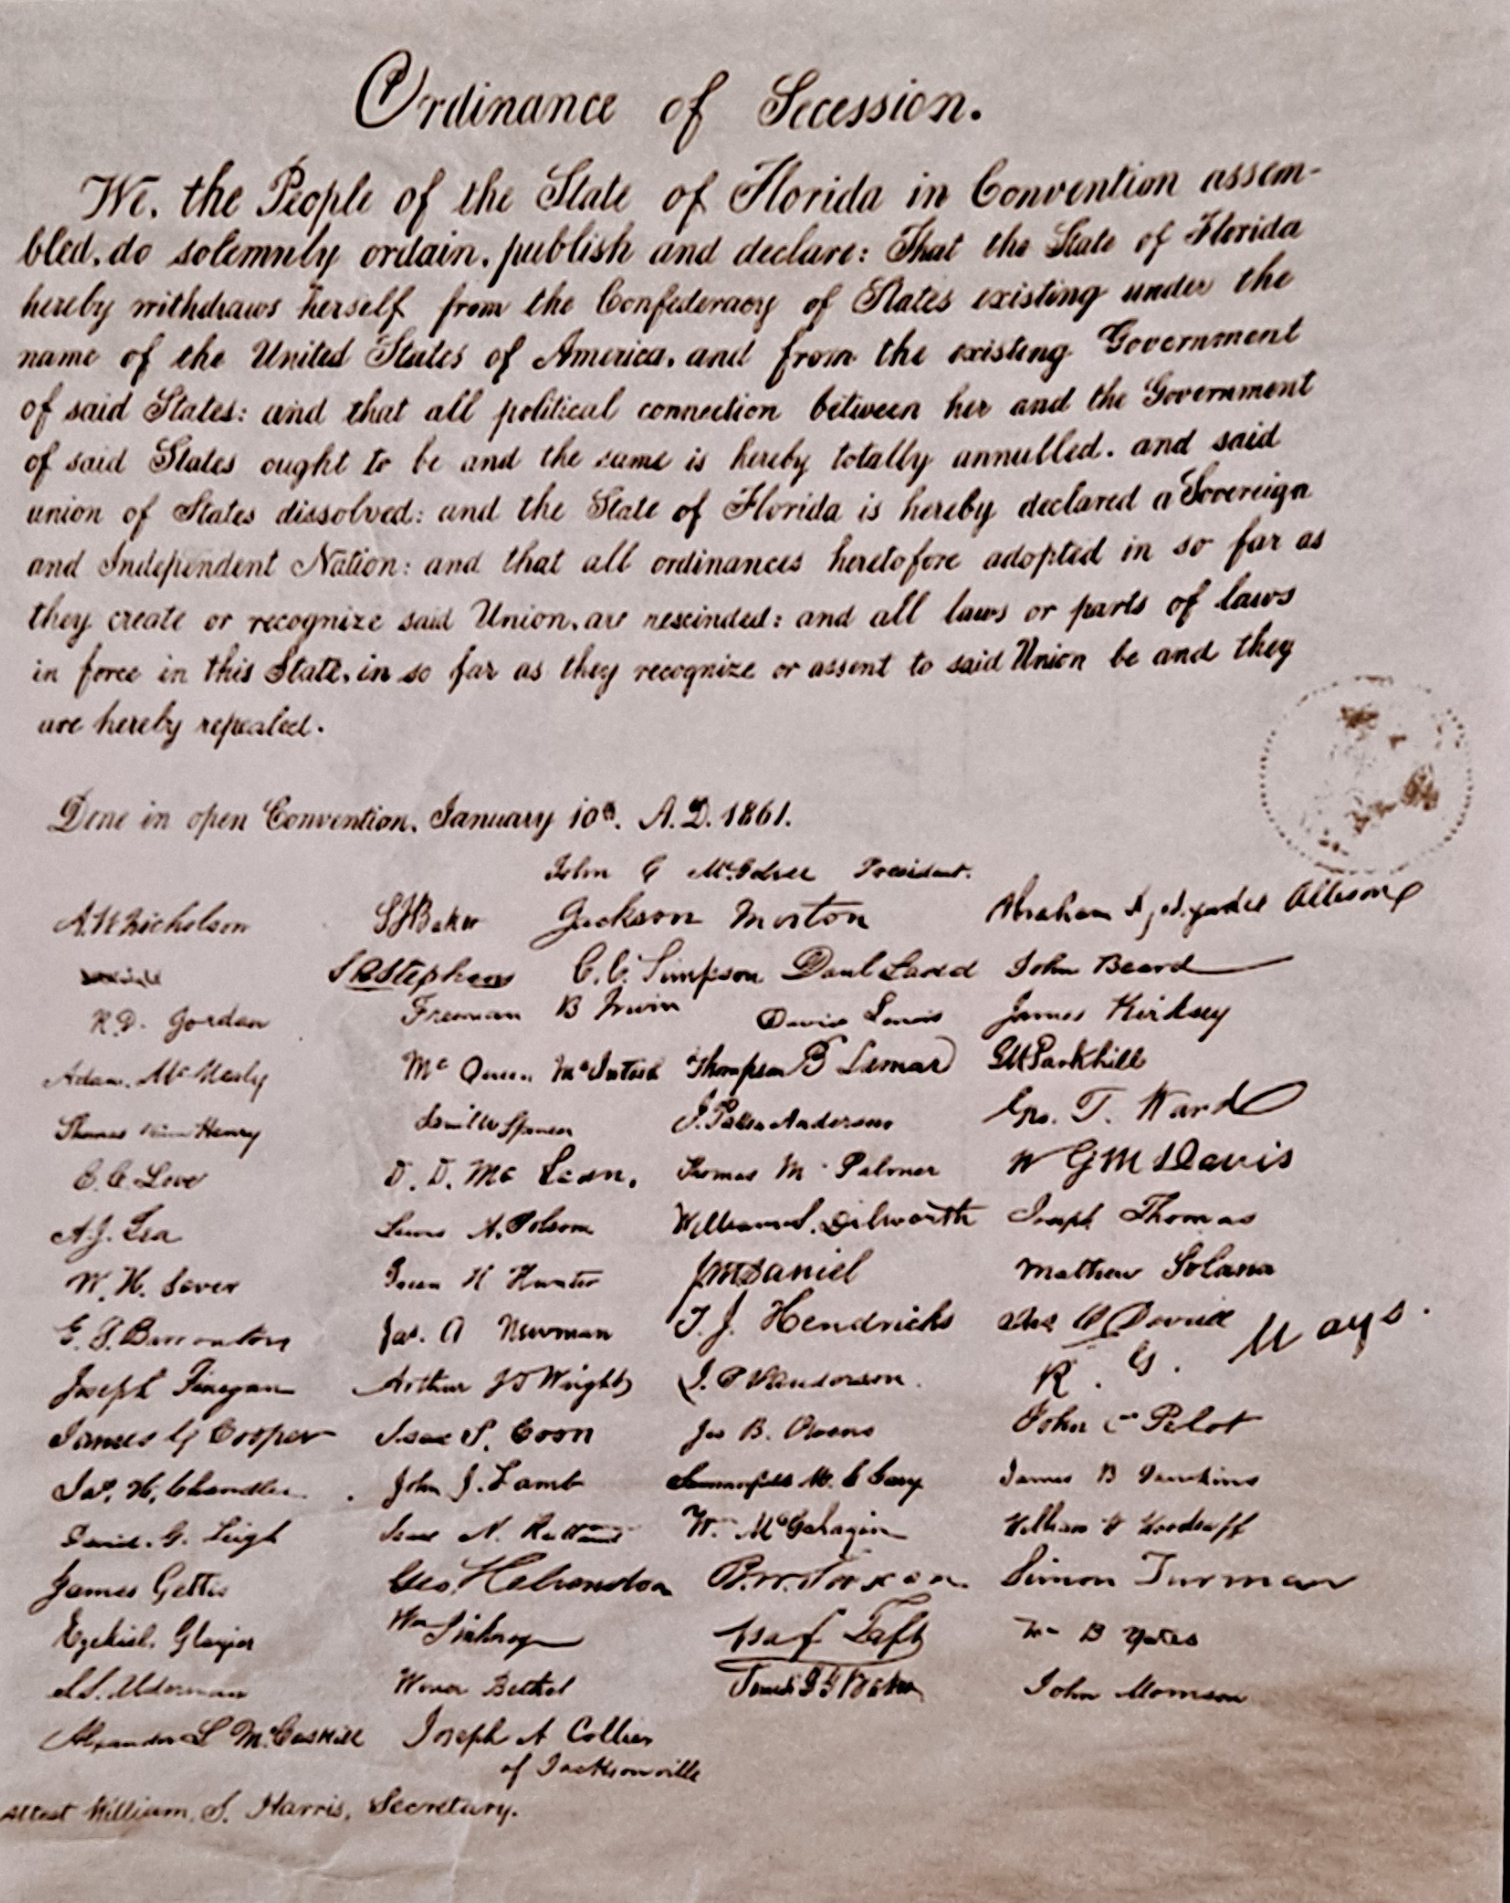 Ordinance of Secession.
We, the People of the State of Florida in Convention assem-
bled, do solemnly ordain, publish and declare: That the State of Florida
hereby withdraws herself from the Confederacy of States existing under the
name of the United States of America, and from the existing Government
of said States: and that all political connection between her and the Government
of said States ought to be and the same is hereby totally annulled, and said
union of States dissolved: and the State of Florida is hereby declared a Sovereign
and Independent Nation: and that all ordinances heretofore adopted in so far as
they create or recognize said Union, are rescinded: and all laws or parts of laws
in force in this State, in so far as they recognize or assent to said Union be and they
are hereby repealed.
Done in open Convention, January 10th. A.D. 1861.
John C McGehee President.
A W Nicholson S J Baker Jackson Morton Abraham Allison
S S Stephens C. C. Simpson Daul Ladd John Beard
R. D. Jordan Freeman B Irwin David Lewis James Kirksey
Adam McNealy McQueen McIntosh Thompson B Lamar G W Parkhill
Thomas Henry J. Patton Anderson Geo. T. Ward
E. E. Love D. D. McLean. Thomas M Palmer W G M Davis
A. J. Lea Lewis A. Folsom William S. Dilworth Joseph Thomas
W. H. Sever Green H Hunter J M Daniel Mathew Solana
Jas. A Newman T. J. Hendricks R. G. Mays.
Joseph Finegan Arthur J T Wright J. P Sanderson.
James G Cooper Isaac S. Coon Jas B. Owens John C Pelot
Jas. H. Chandler John J. Lamb Summerfield M. G Gary James B Dawkins
David G. Leigh Isaac N. Rutland Wm McGahagin William W Woodruff
James Gettis Geo. Helvenston Simon Turman
Ezekiel Glazier Wm Pinkney Asa F Tift Wm B Yates
S. S. Alderman Winer Bethel John Morrison
Alexander L McCaskill Joseph A Collier
of Jacksonville
Attest William S. Harris, Secretary.